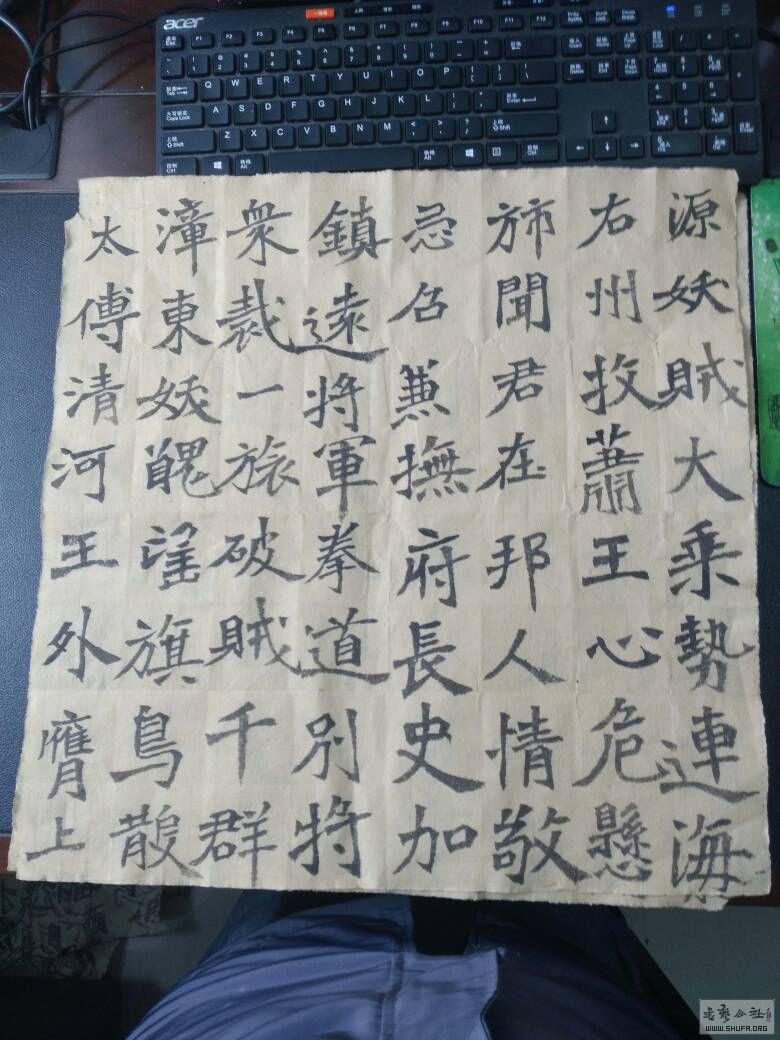 源妖賊大乘勢連海
右州牧蕭王心危懸
聞君在邦人情敬
召兼撫府長史加
鎮遠將軍拳道別將
衆裁一旅破賊千群
漳東妖醜望旗鳥散
太傅清河王外膺上
acer
書藝公社
WWW.SHUFA.ORG